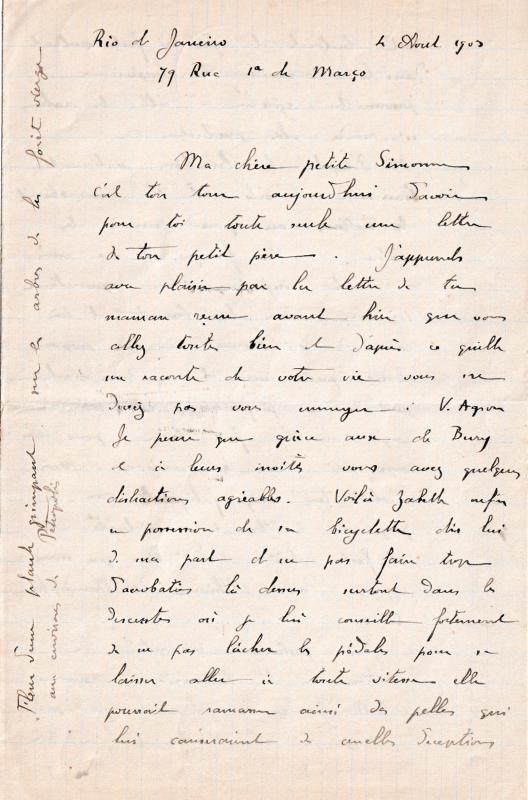 Rio de Janeiro 4 Aout 1903
79 Rue 1ª de Março
Ma chère petite Simonne
c'est ton tour aujourd'hui d'avoir
pour toi toute seule une lettre
de ton petit père. J'apprends
avec plaisir par la lettre de ta
maman reçue avant hier que vous
allez toutes bien et d'après ce qu'elle
me raconte de votre vie vous ne
devez pas vous ennuyer à V.
Je pense que grâce aux de Bury
et à leurs invités vous avez quelques
distractions agréables. Voilà enfin
en possession de sa bicyclette dis lui
de ma part de ne pas faire trop
d'acrobaties là dessus surtout dans les
descentes où je lui conseille fortement
de ne pas lâcher les pédales pour se
laisser aller à toute vitesse elle
pourrait ramasser ainsi des pelles qui
lui causeraient de cruelles déceptions
Fleur d'une plante grimpant sur les arbres de la forêt vierge
aux environs de Petropolis